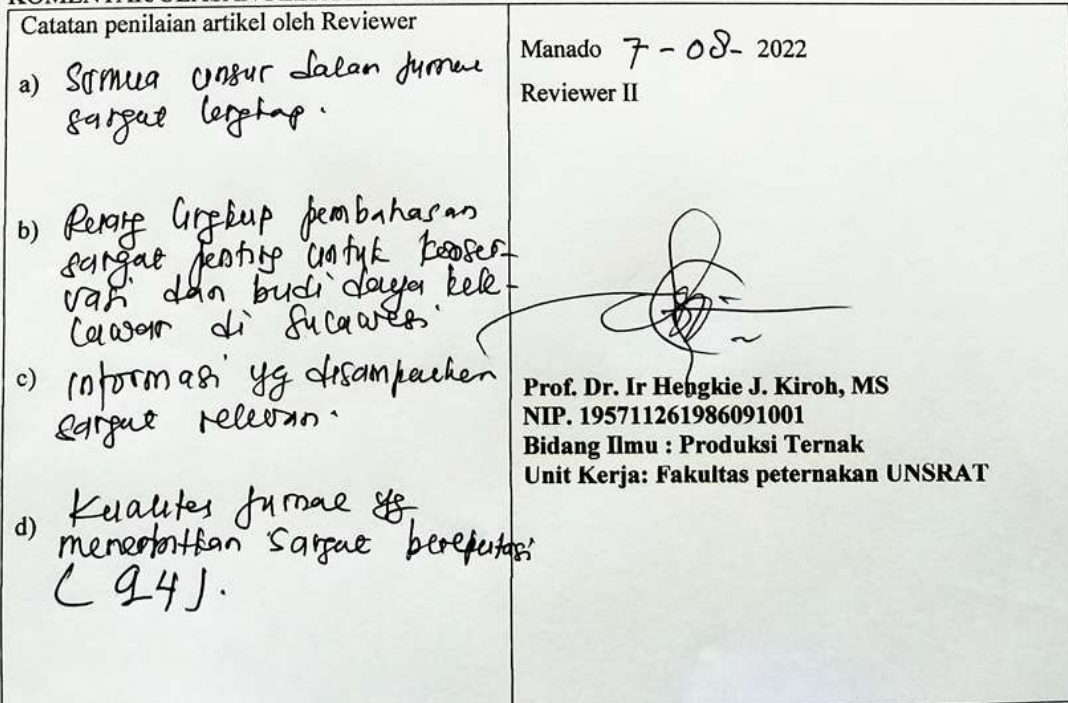 Catatan penilaian artikel oleh Reviewer
a) Semua unsur dalam jurnal
sangat lengkap.
b) Ruang lingkup pembahasan
sangat penting untuk konser-
vasi dan budi daya kele-
lawar di Sulawesi
c) informasi yg disampaikan
sangat relevan.
d) Kualitas jurnal yg
menerbitkan sangat bereputasi
(Q4).
Manado 7-08-2022
Reviewer II
Prof. Dr. Ir Hengkie J. Kiroh, MS
NIP. 195711261986091001
Bidang Ilmu : Produksi Ternak
Unit Kerja: Fakultas peternakan UNSRAT